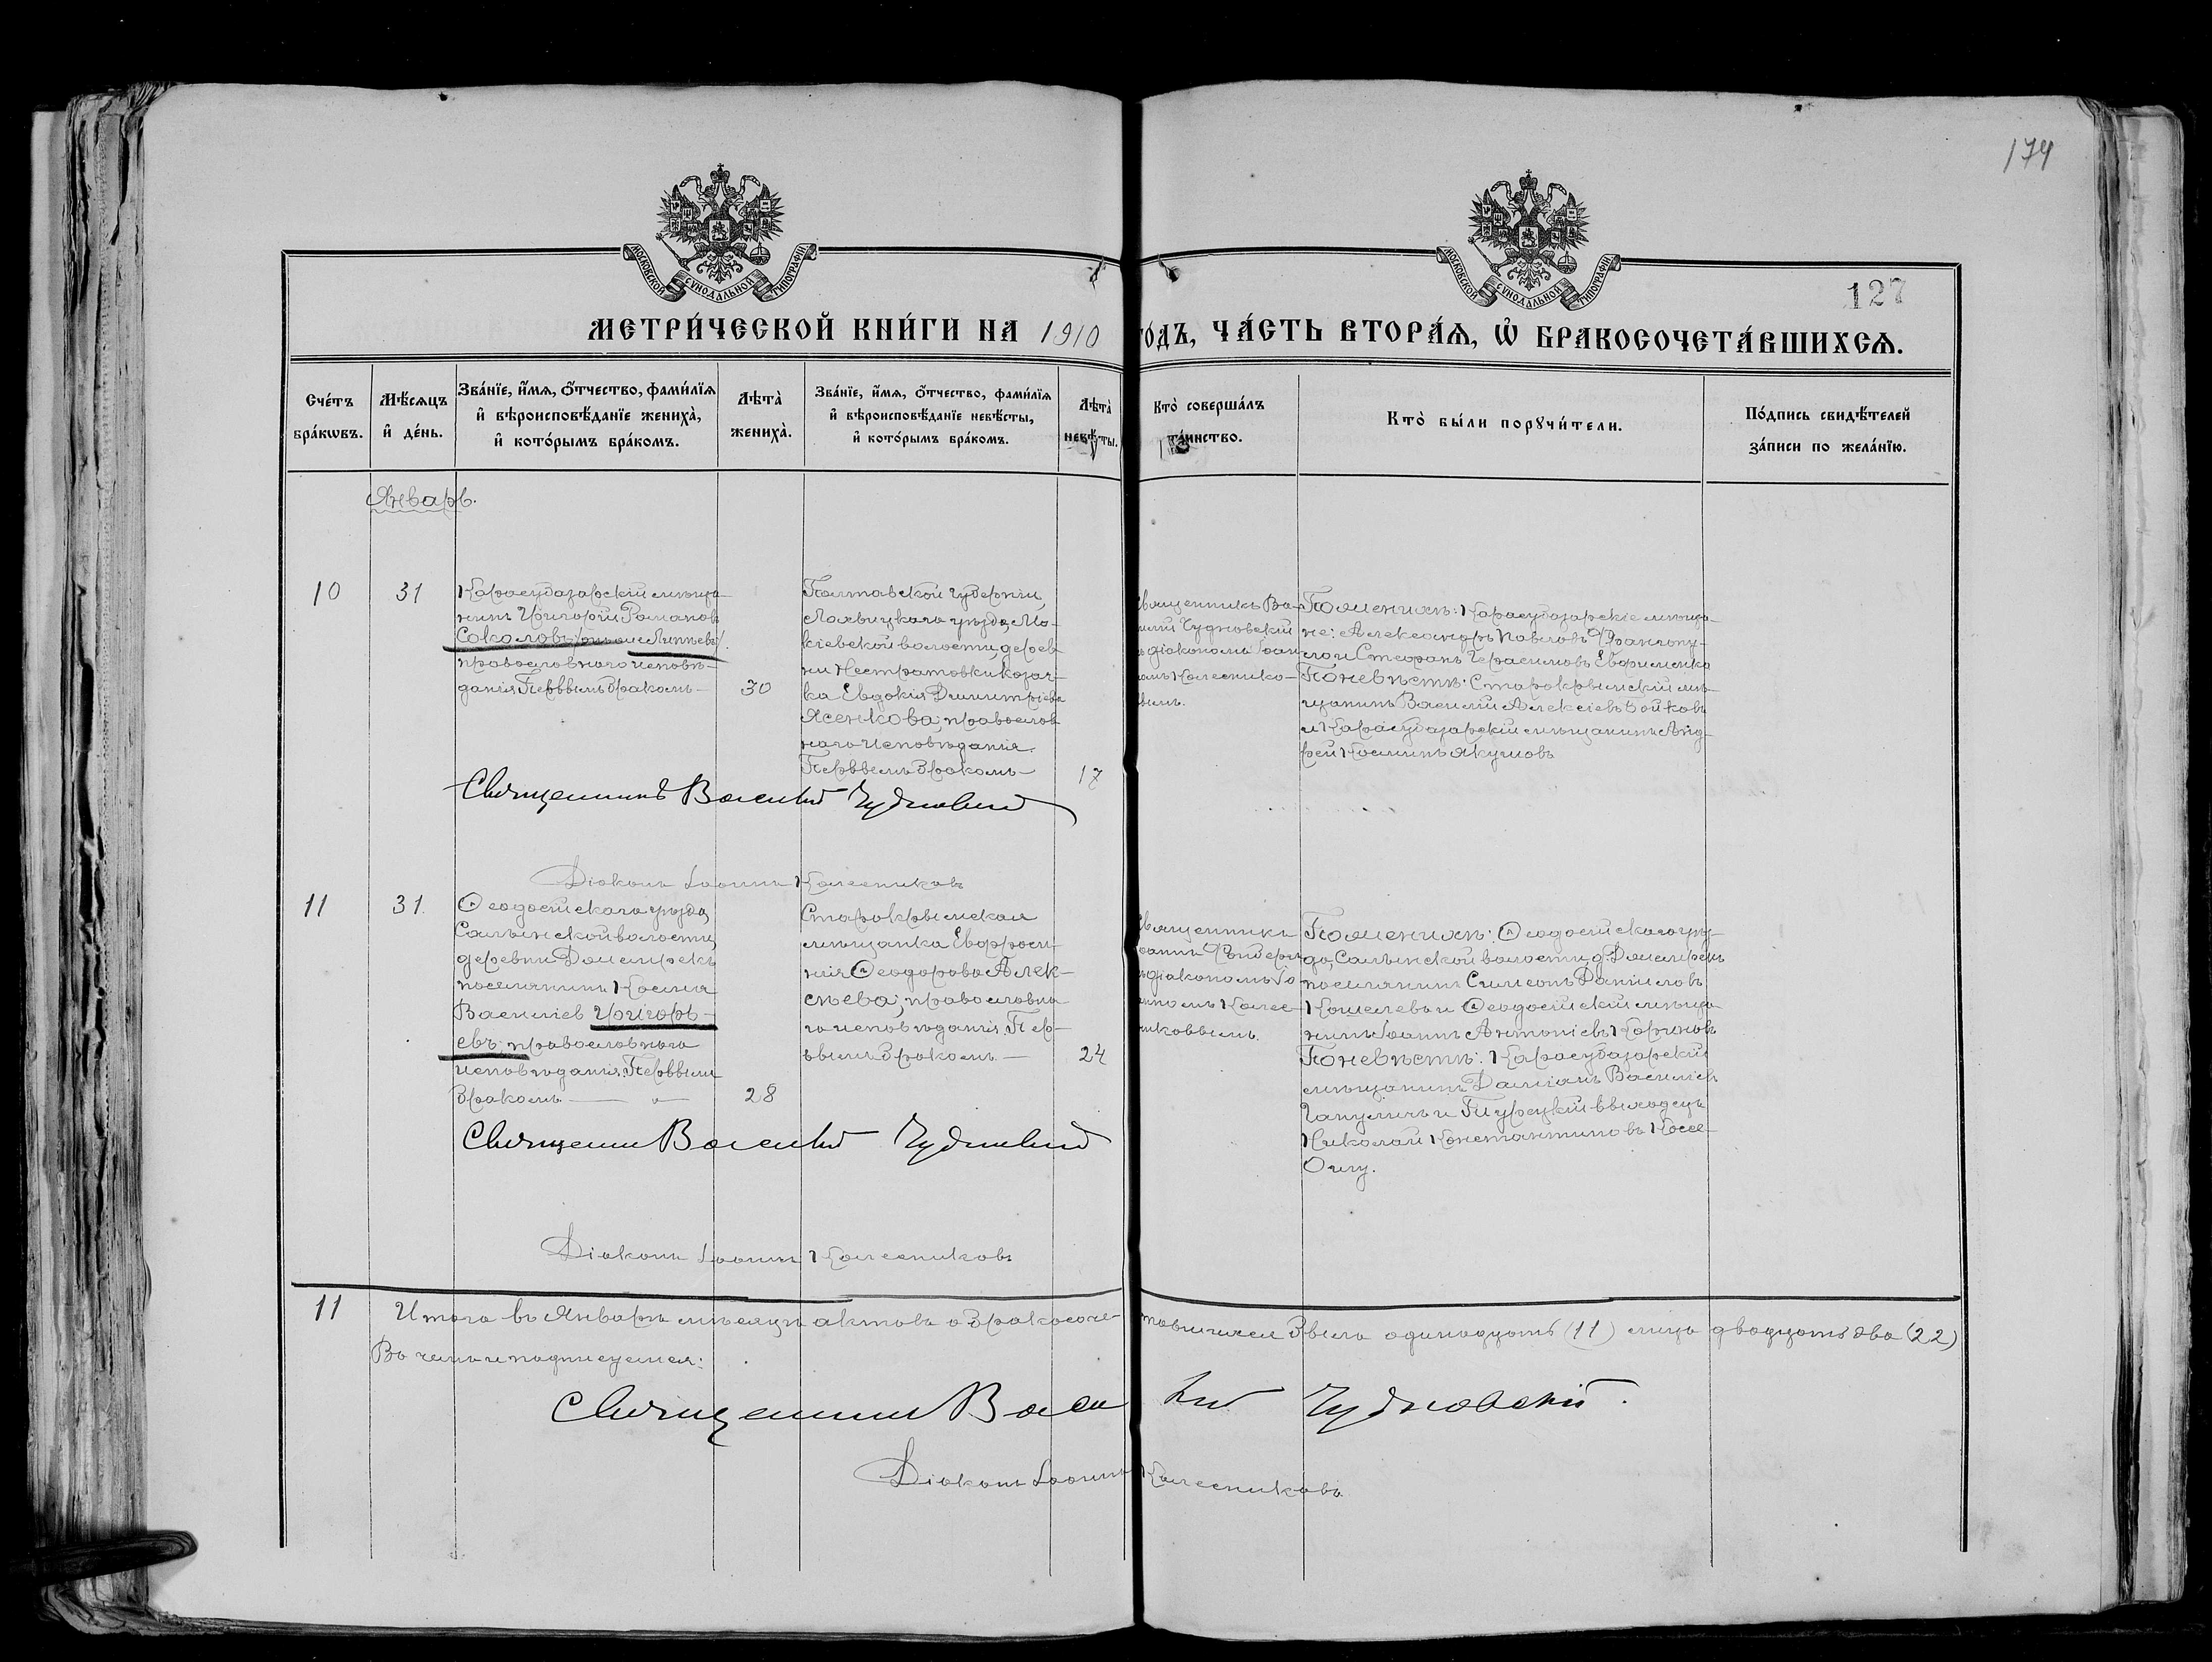 174
МОСКОВСКОЙ СУНОДАЛЬНОЙ ТИПОГРАФІИ
МОСКОВСКОЙ СУНОДАЛЬНОЙ ТИПОГРАФІИ
127
МЕТРИ́ЧЕСКОЙ КНИ́ГИ НА 1910 ГО́ДЪ, ЧА́СТЬ ВТОРА́Ѧ, Ѡ҆ БРАКОСОЧЕТА́ВШИХСѦ.
Сче́тъ
бра́кѡвъ.
Мѣ́сяцъ
и҆ де́нь.
Зва́нїе, и҆́мѧ, ѻ҆́тчество, фами́лїѧ
и҆ вѣроисповѣ́данїе жениха̀,
и҆ кото́рымъ бра́комъ.
Лѣта̀
жениха̀.
Зва́нїе, и҆́мѧ, ѻ҆́тчество, фами́лїѧ
и҆ вѣроисповѣ́данїе невѣ́сты,
и҆ кото́рымъ бра́комъ.
Лѣта̀
невѣ́сты.
Кто̀ соверша́лъ
та́инство.
Кто̀ бы́ли порꙋчи́тели.
По́дпись свидѣ́телей
за́писи по жела́нїю.
Январь.
10
31
Карасубазарскій мѣща-
нинъ Григорій Романовъ
Соколовъ
православнаго исповѣ-
данія. Первымъ бракомъ —
30
Полтавской губерніи,
Лохвицкаго уѣзда,
кіевской волости, дерев-
ни Нестратовки козач-
ка Евдокія Димитріева
Ясенкова; православ-
наго исповѣданія.
Первымъ бракомъ —
17
Священникъ Ва-
силій Чудновскій
съ діакономъ Іоан-
номъ Колеснико-
вымъ.
По женихѣ: Карасубазарскіе мѣща-
не: Александръ Павловъ Франгопу-
ло и Стефанъ Герасимовъ Ефименко
По невѣстѣ: Старокрымскій мѣ-
щанинъ Василій Алексіевъ Бойковъ
и Карасубазарскій мѣщанинъ Анд-
рей Косминъ Якушовъ
Священникъ Василій Чудновскій
Діаконъ Іоаннъ Колесниковъ
11
31.
Ѳеодосійскаго уѣзда,
Салынской волости,
деревни
поселянинъ Косма
Василіевъ Григорь-
евъ; православнаго
исповѣданія. Первымъ
бракомъ —
28
Старокрымская
мѣщанка Евфроси-
нія Ѳеодорова Алек-
сѣева; православна-
го исповѣданія. Пер-
вымъ бракомъ —
24
Священникъ
Іоаннъ
съ діакономъ Іо-
анномъ Колес-
никовымъ.
По женихѣ: Ѳеодосійскаго уѣз-
да, Салынской волости, д.
поселянинъ Симеонъ Даніиловъ
Кошелевъ и Ѳеодосійскій мѣща-
нинъ Іоаннъ Антоніевъ
По невѣстѣ: Карасубазарскій
мѣщанинъ Даміанъ Василіевъ
и Турецкій выходецъ
Николай Константиновъ
Священникъ Василій Чудновскій
Діаконъ Іоаннъ Колесниковъ.
11 Итого въ Январѣ мѣсяцѣ актовъ о бракосоче-тавшихся было одинадцать (11) лицъ двадцать два (22)
Въ чемъ и подписуемся:
Священникъ Василій Чудновскій.
Діаконъ Іоаннъ Колесниковъ.